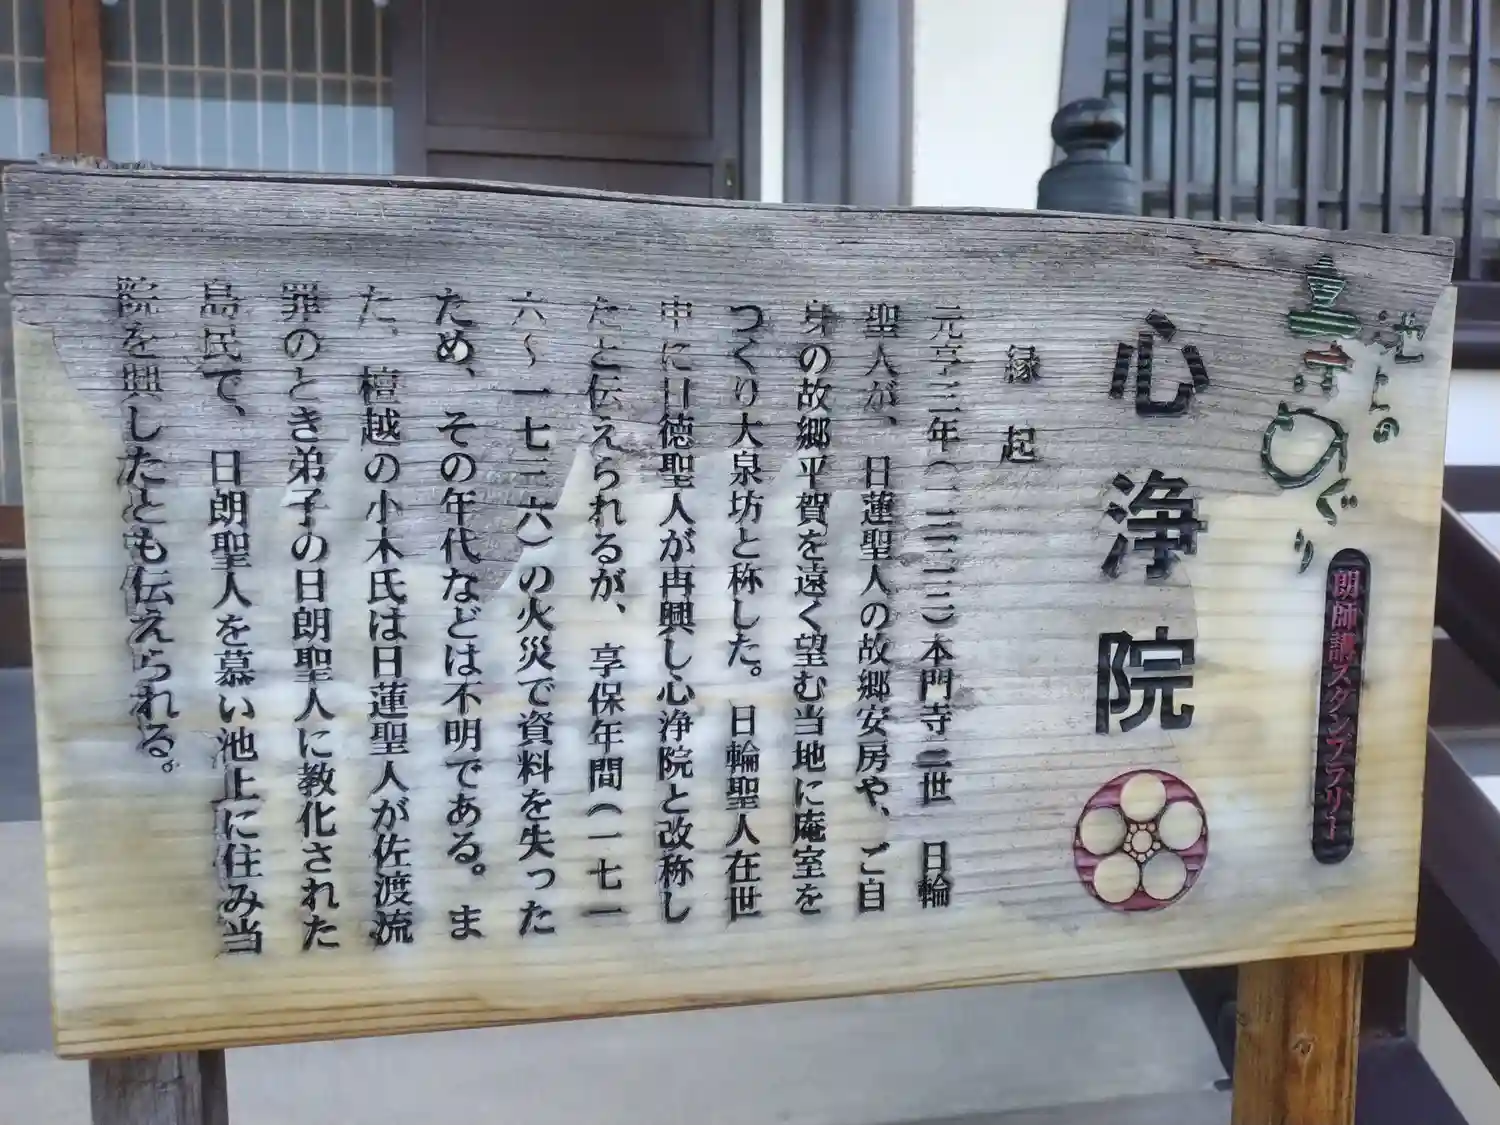 池上の
寺まちめぐり
朗師講スタンプラリー
心浄院
縁起
元亨三年(一三二三)本門寺二世 日輪
聖人が、日蓮聖人の故郷安房や、ご自
身の故郷平賀を遠く望む当地に庵室を
つくり大泉坊と称した。日輪聖人在世
中に日徳聖人が再興し心浄院と改称し
たと伝えられるが、享保年間(一七一
六〜一七三六)の火災で資料を失った
ため、その年代などは不明である。ま
た、檀越の小木氏は日蓮聖人が佐渡流
罪のとき弟子の日朗聖人に教化された
島民で、日朗聖人を慕い池上に住み当
院を興したとも伝えられる。